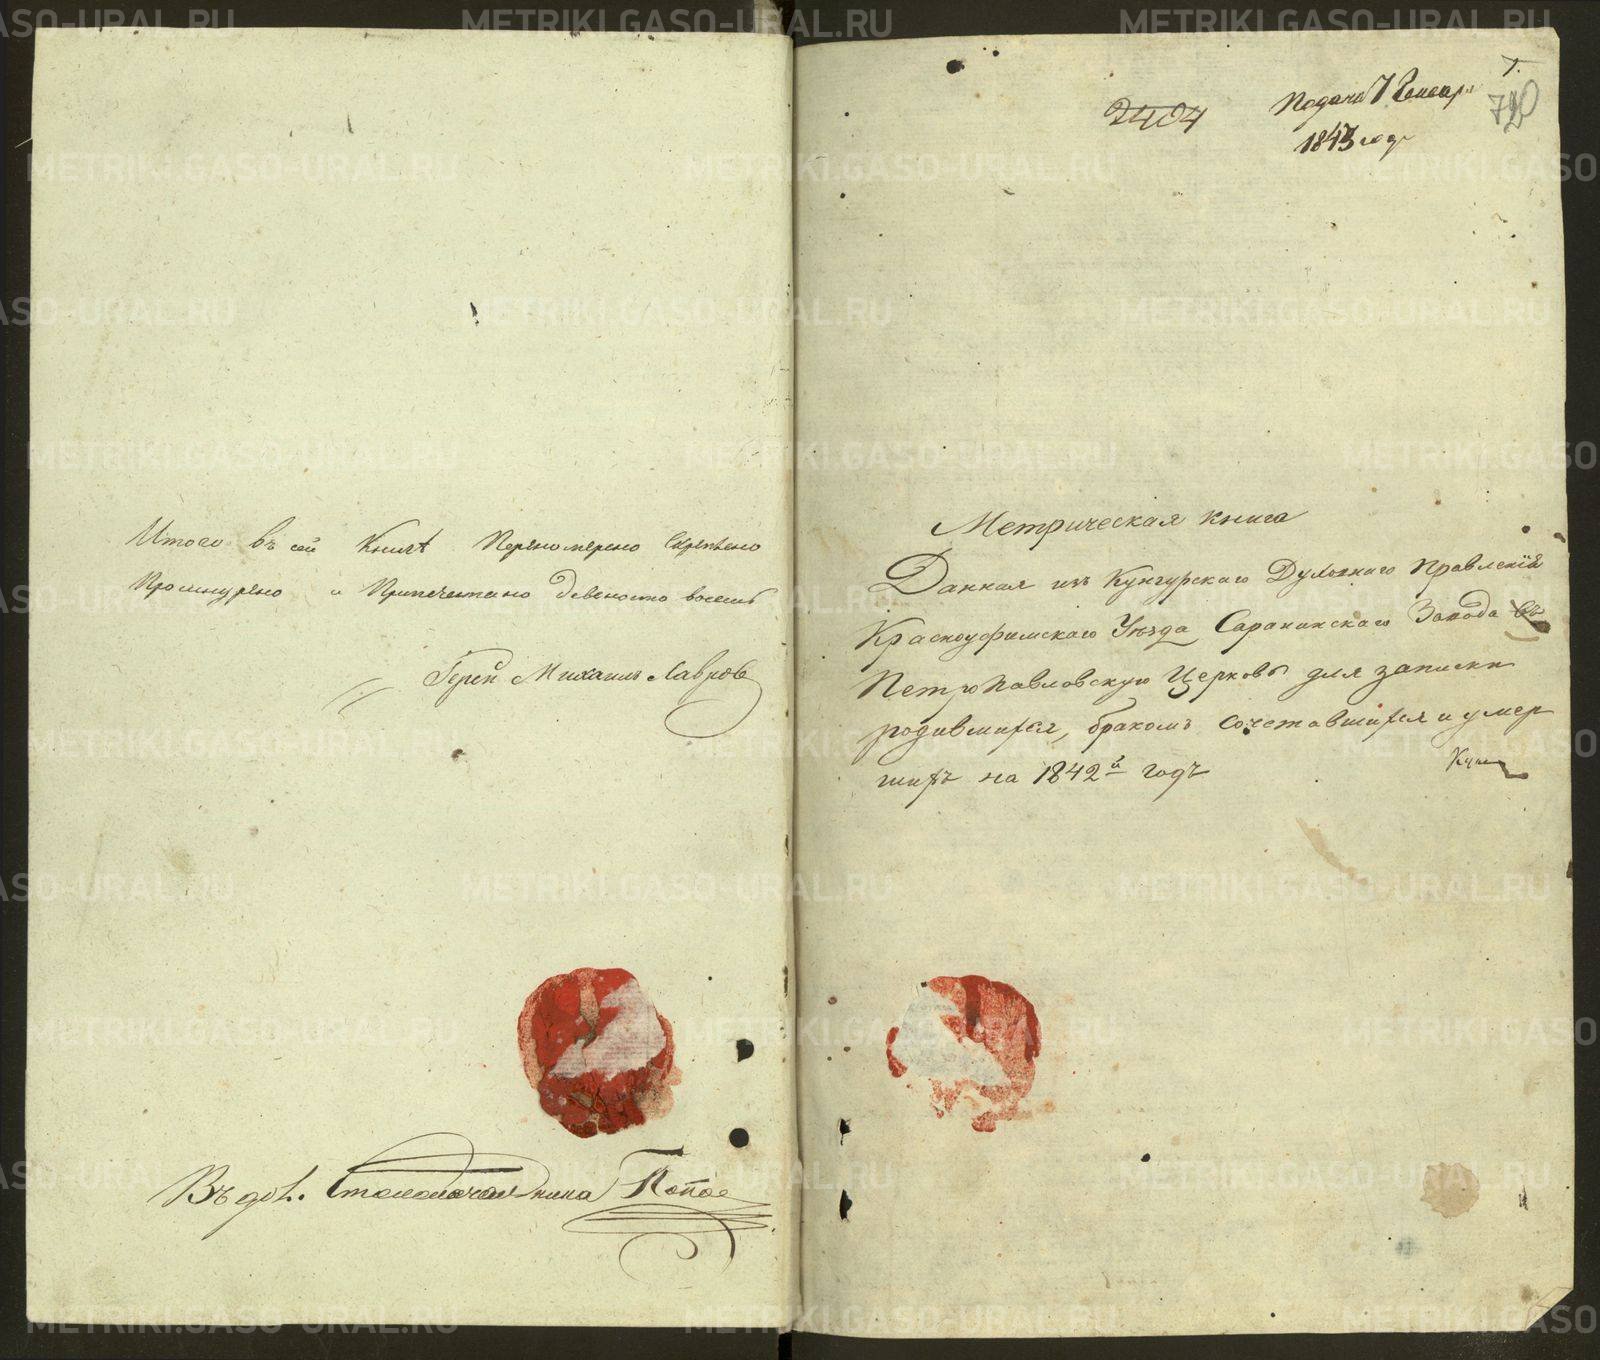 Итого въ сей Книгѣ Перѣномерено Скрѣплено
Прошнурено и Припечатано девеносто восемь
Іерей Михаилъ Лавровъ
Въ дол. Столоначальника Попов
1.
2404
Подана 7 Генвар
720
1843 году
Метрическая книга
Данная изъ Кунгурскаго Духовнаго Правленія
Красноуфимскаго Уѣзда Саранинскаго Завода въ
Петропавловскую Церковь для записки
родившихся, бракомъ сочетавшихся и умер
шихъ на 1842й годъ
METRIKI.GASO-URAL.RU